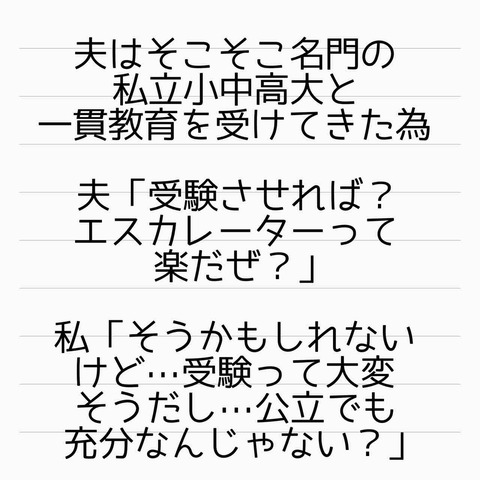 夫はそこそこ名門の
私立小中高大と
一貫教育を受けてきた為
夫「受験させれば？
エスカレーターって
楽だぜ？」
私「そうかもしれない
けど…受験って大変
そうだし…公立でも
充分なんじゃない？」